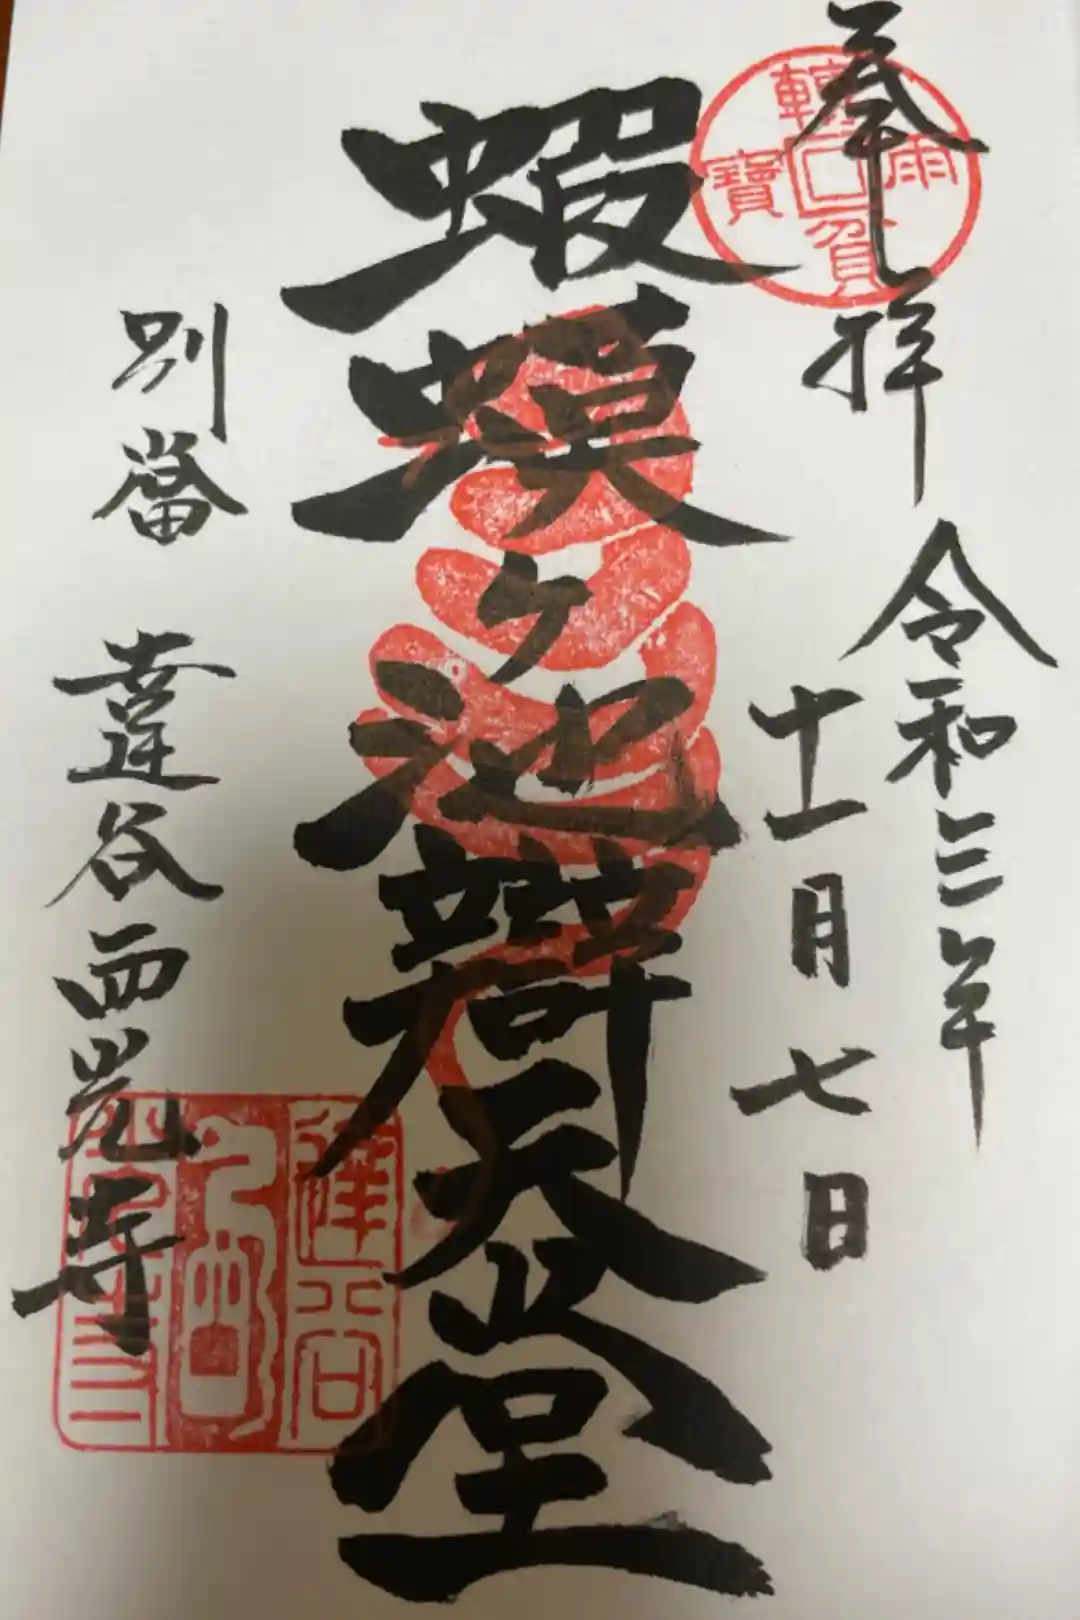 奉拝
令和三年
十一月七日
蝦蟆ヶ池辨天堂
別當
達谷西光寺
雨
寶